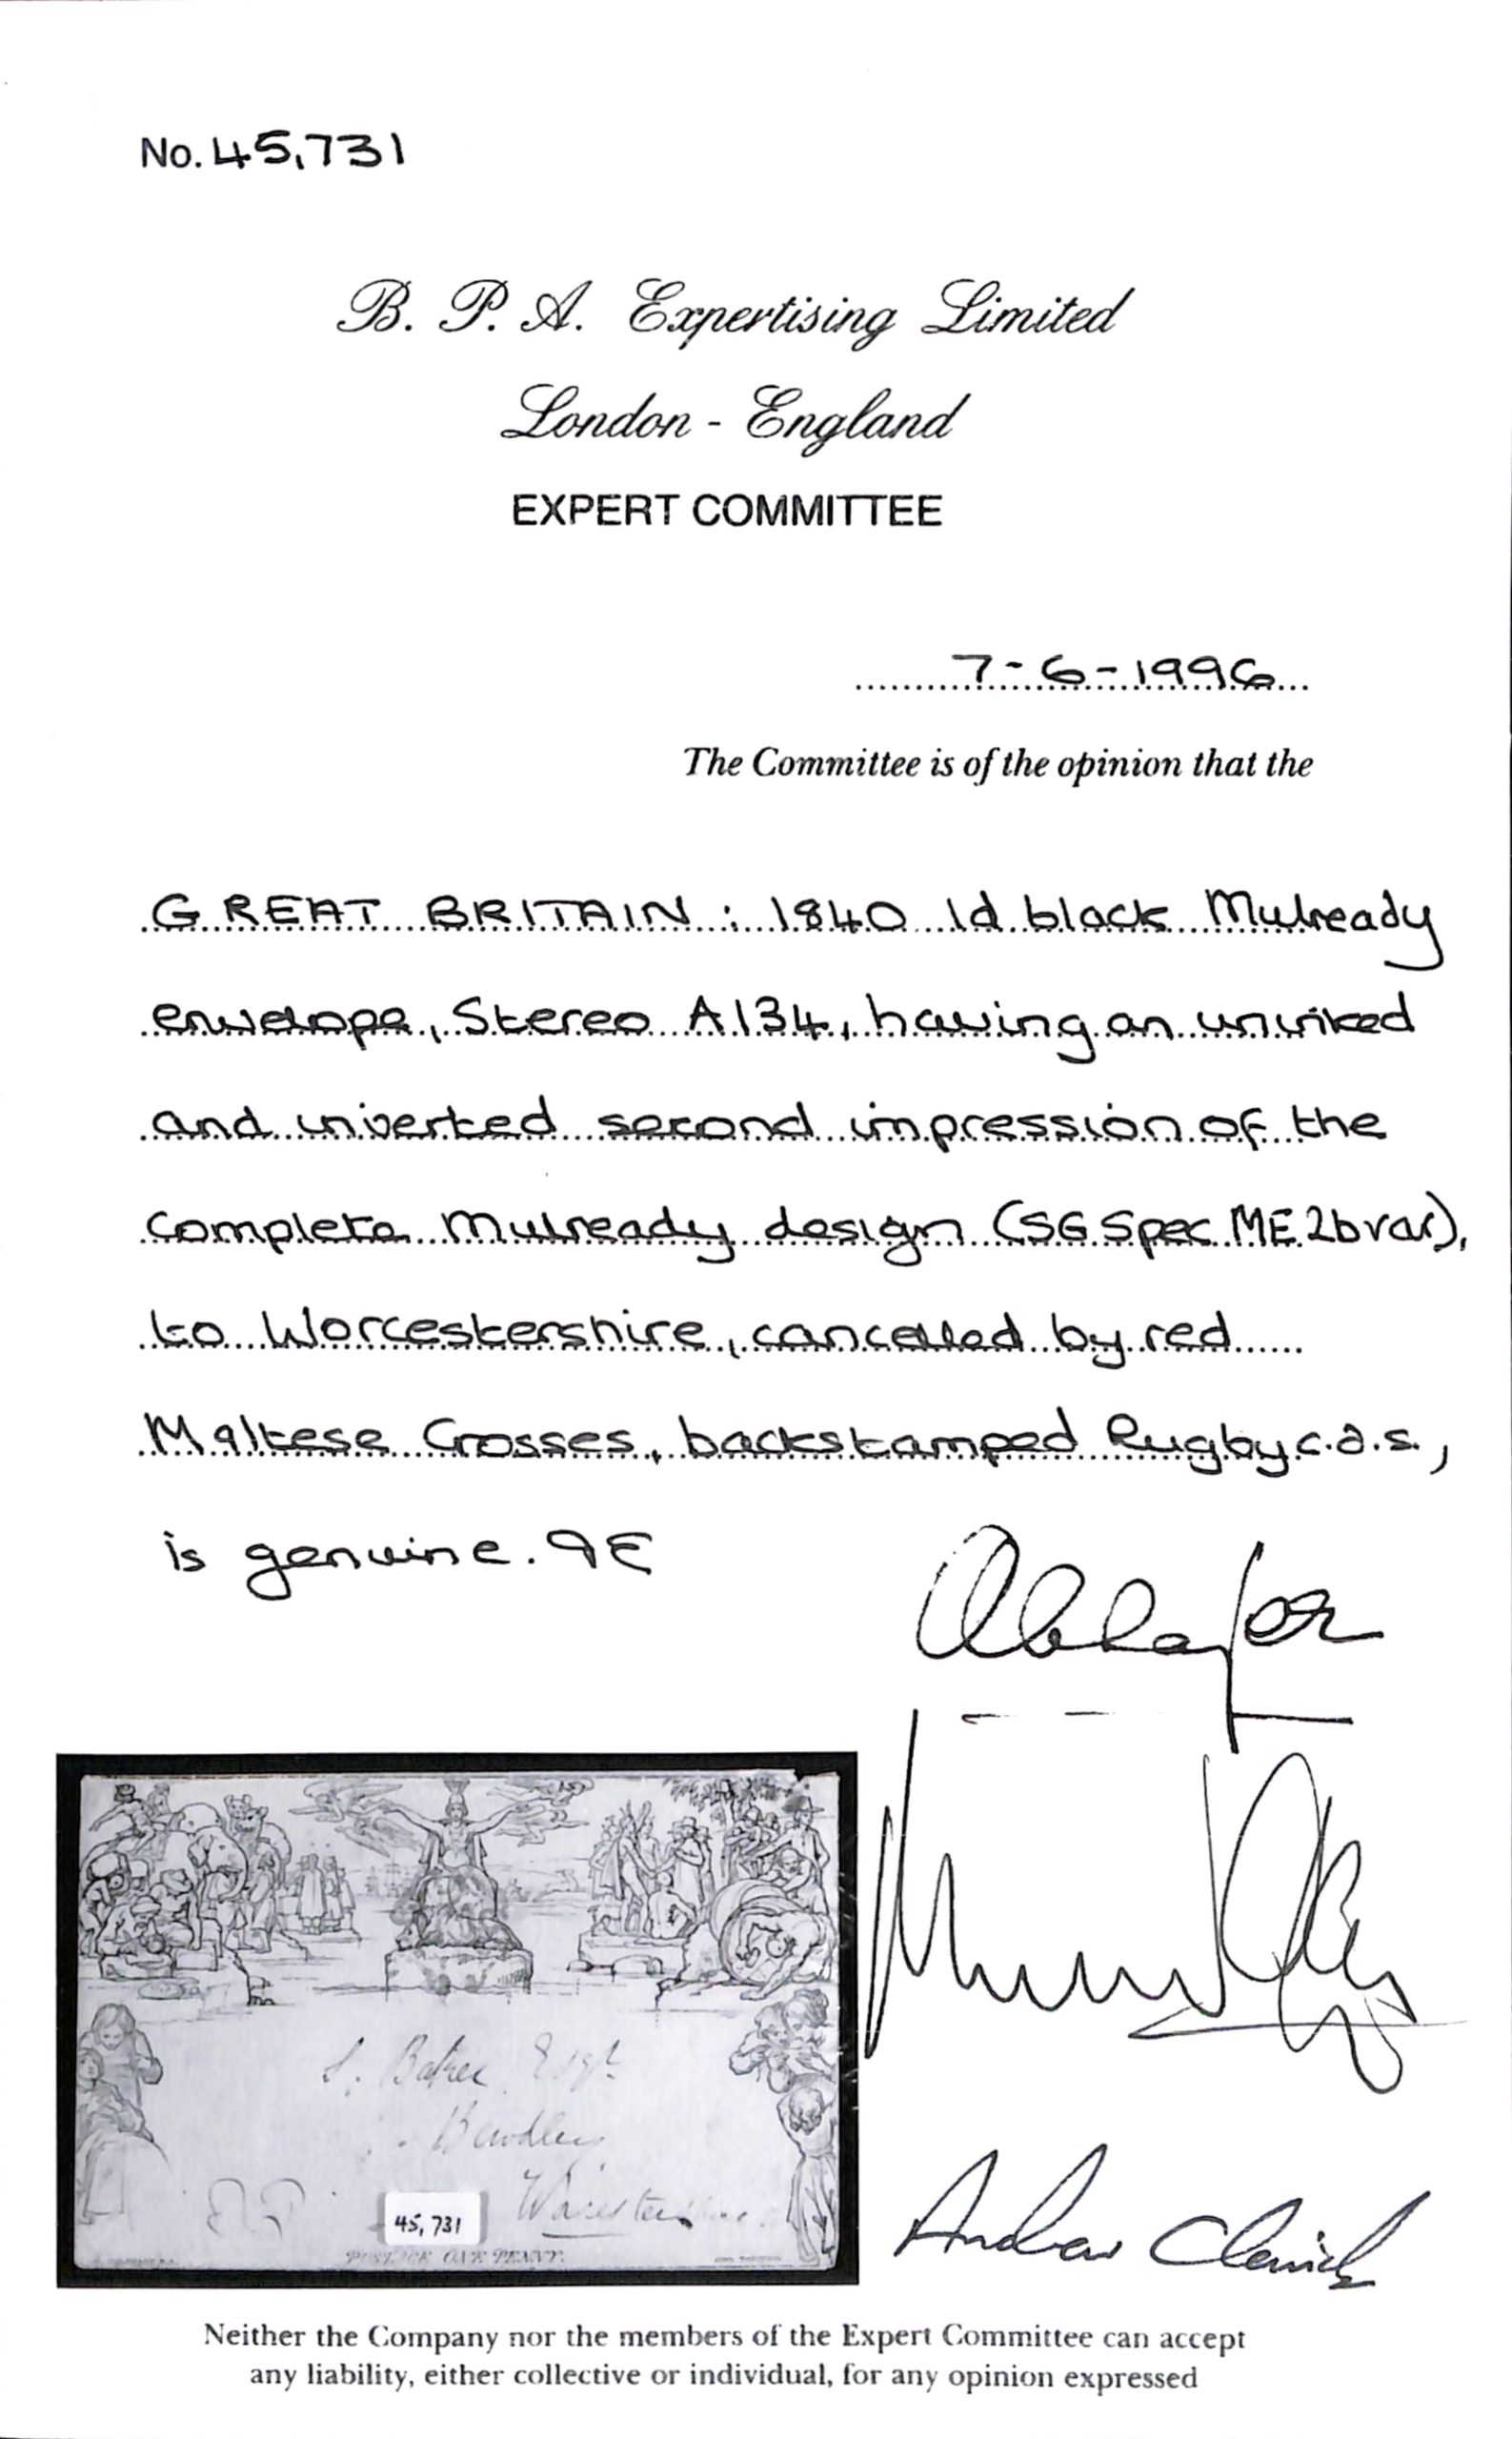 No. 45,731
B. P. A. Expertising Limited
London - England
EXPERT COMMITTEE
7-6-1996
The Committee is of the opinion that the
GREAT BRITAIN : 1840 1d black Mulready
envelope, Stereo A134, having an uninked
and inverted second impression of the
complete Mulready design (SG Spec ME2b var),
to Worcestershire, cancelled by red
Maltese Crosses, backstamped Rugby c.d.s.,
is genuine.
Baker Esqr
Bewdley
45,731
POSTAGE ONE PENNY
Andrew
Neither the Company nor the members of the Expert Committee can accept
any liability, either collective or individual, for any opinion expressed